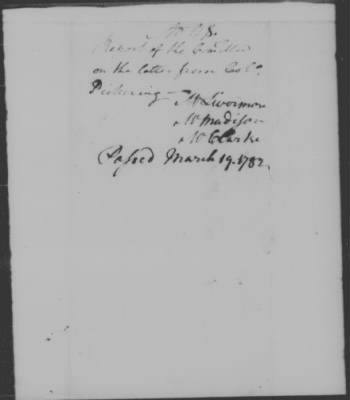 Report of the Committee
on the letter from Col.
Pickering
Mr Livermore
Mr Madison
Mr Clarke
Passed March 19. 1782.